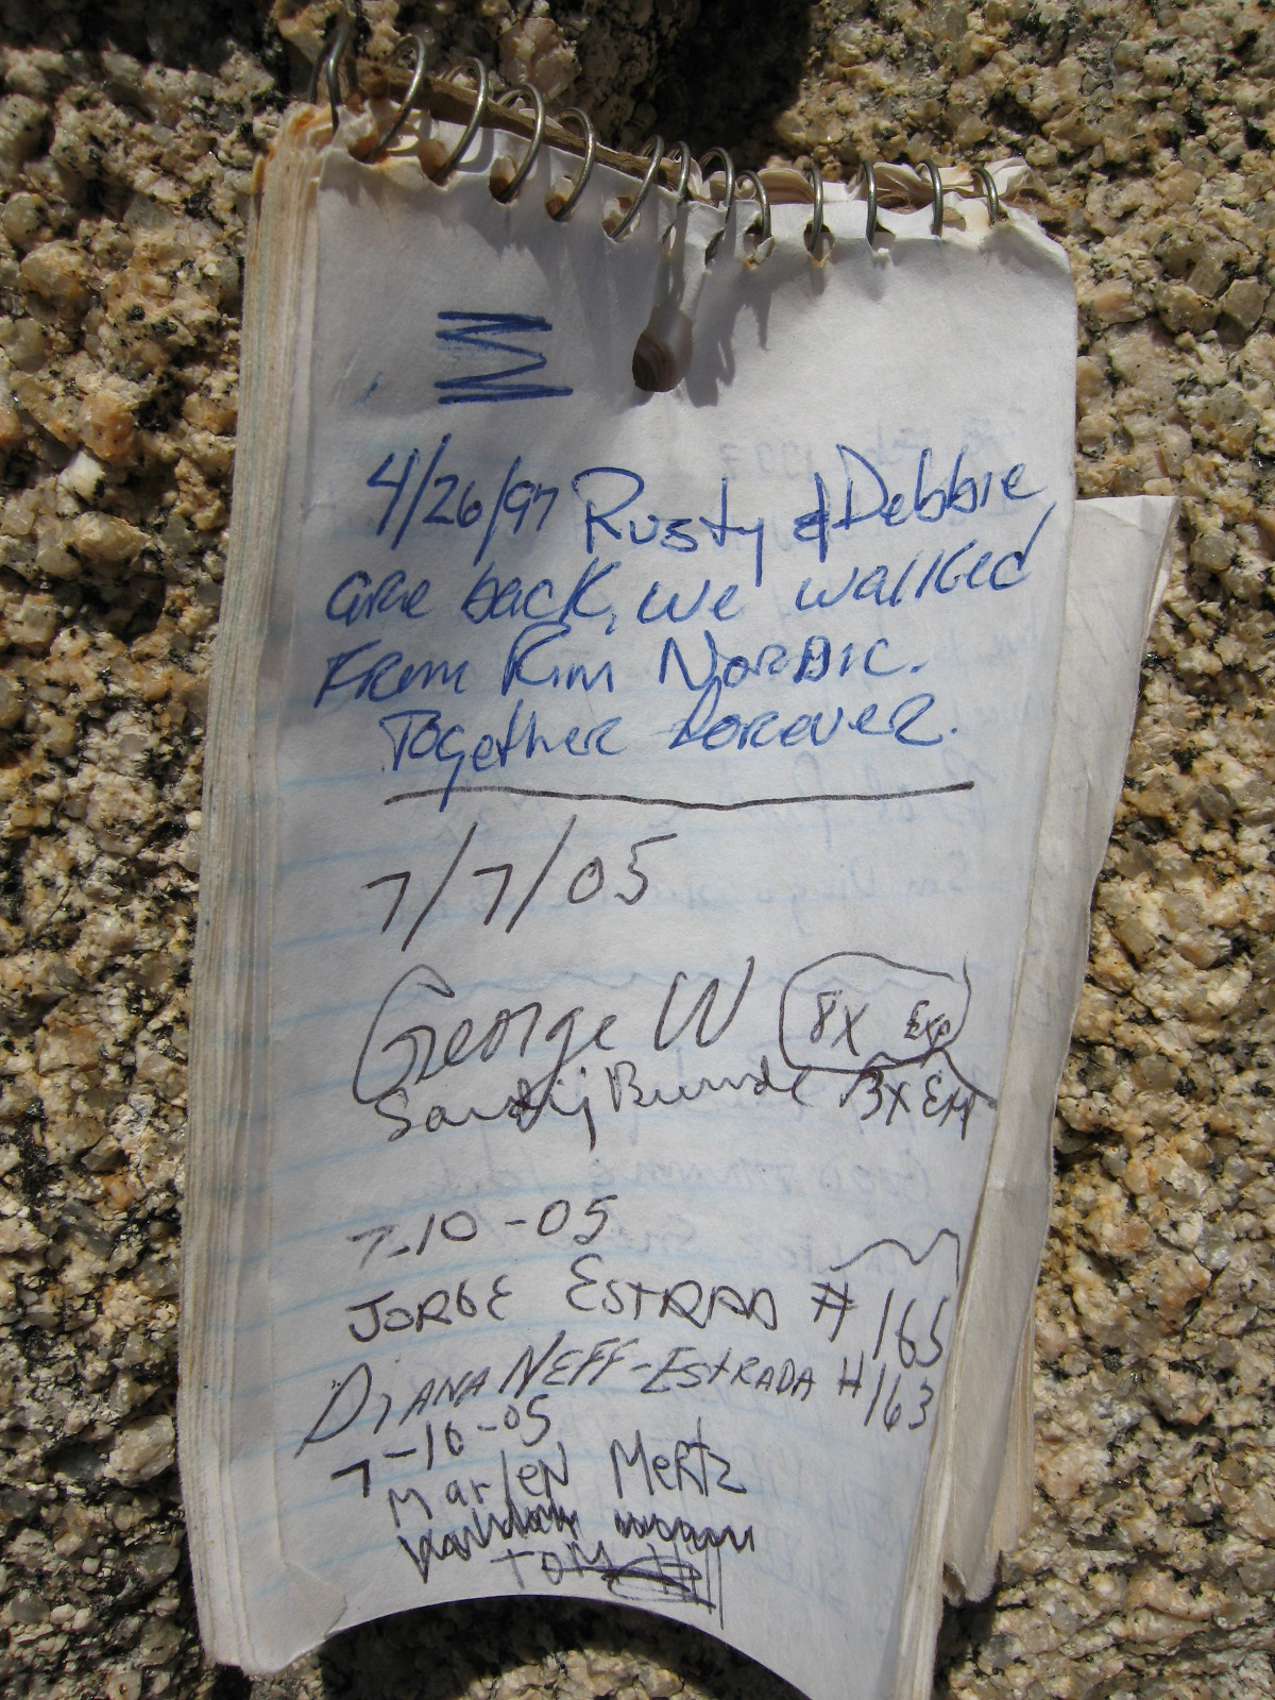 4/26/97 Rusty & Debbie
are back, we walked
From Rim Nordic.
Together forever.
7/7/05
George W 8X Exp
Sandy 3X EM
7-10-05
JORGE ESTRADA #165
DIANA NEFF-ESTRADA #163
7-16-05
MarleN Mertz
TOM